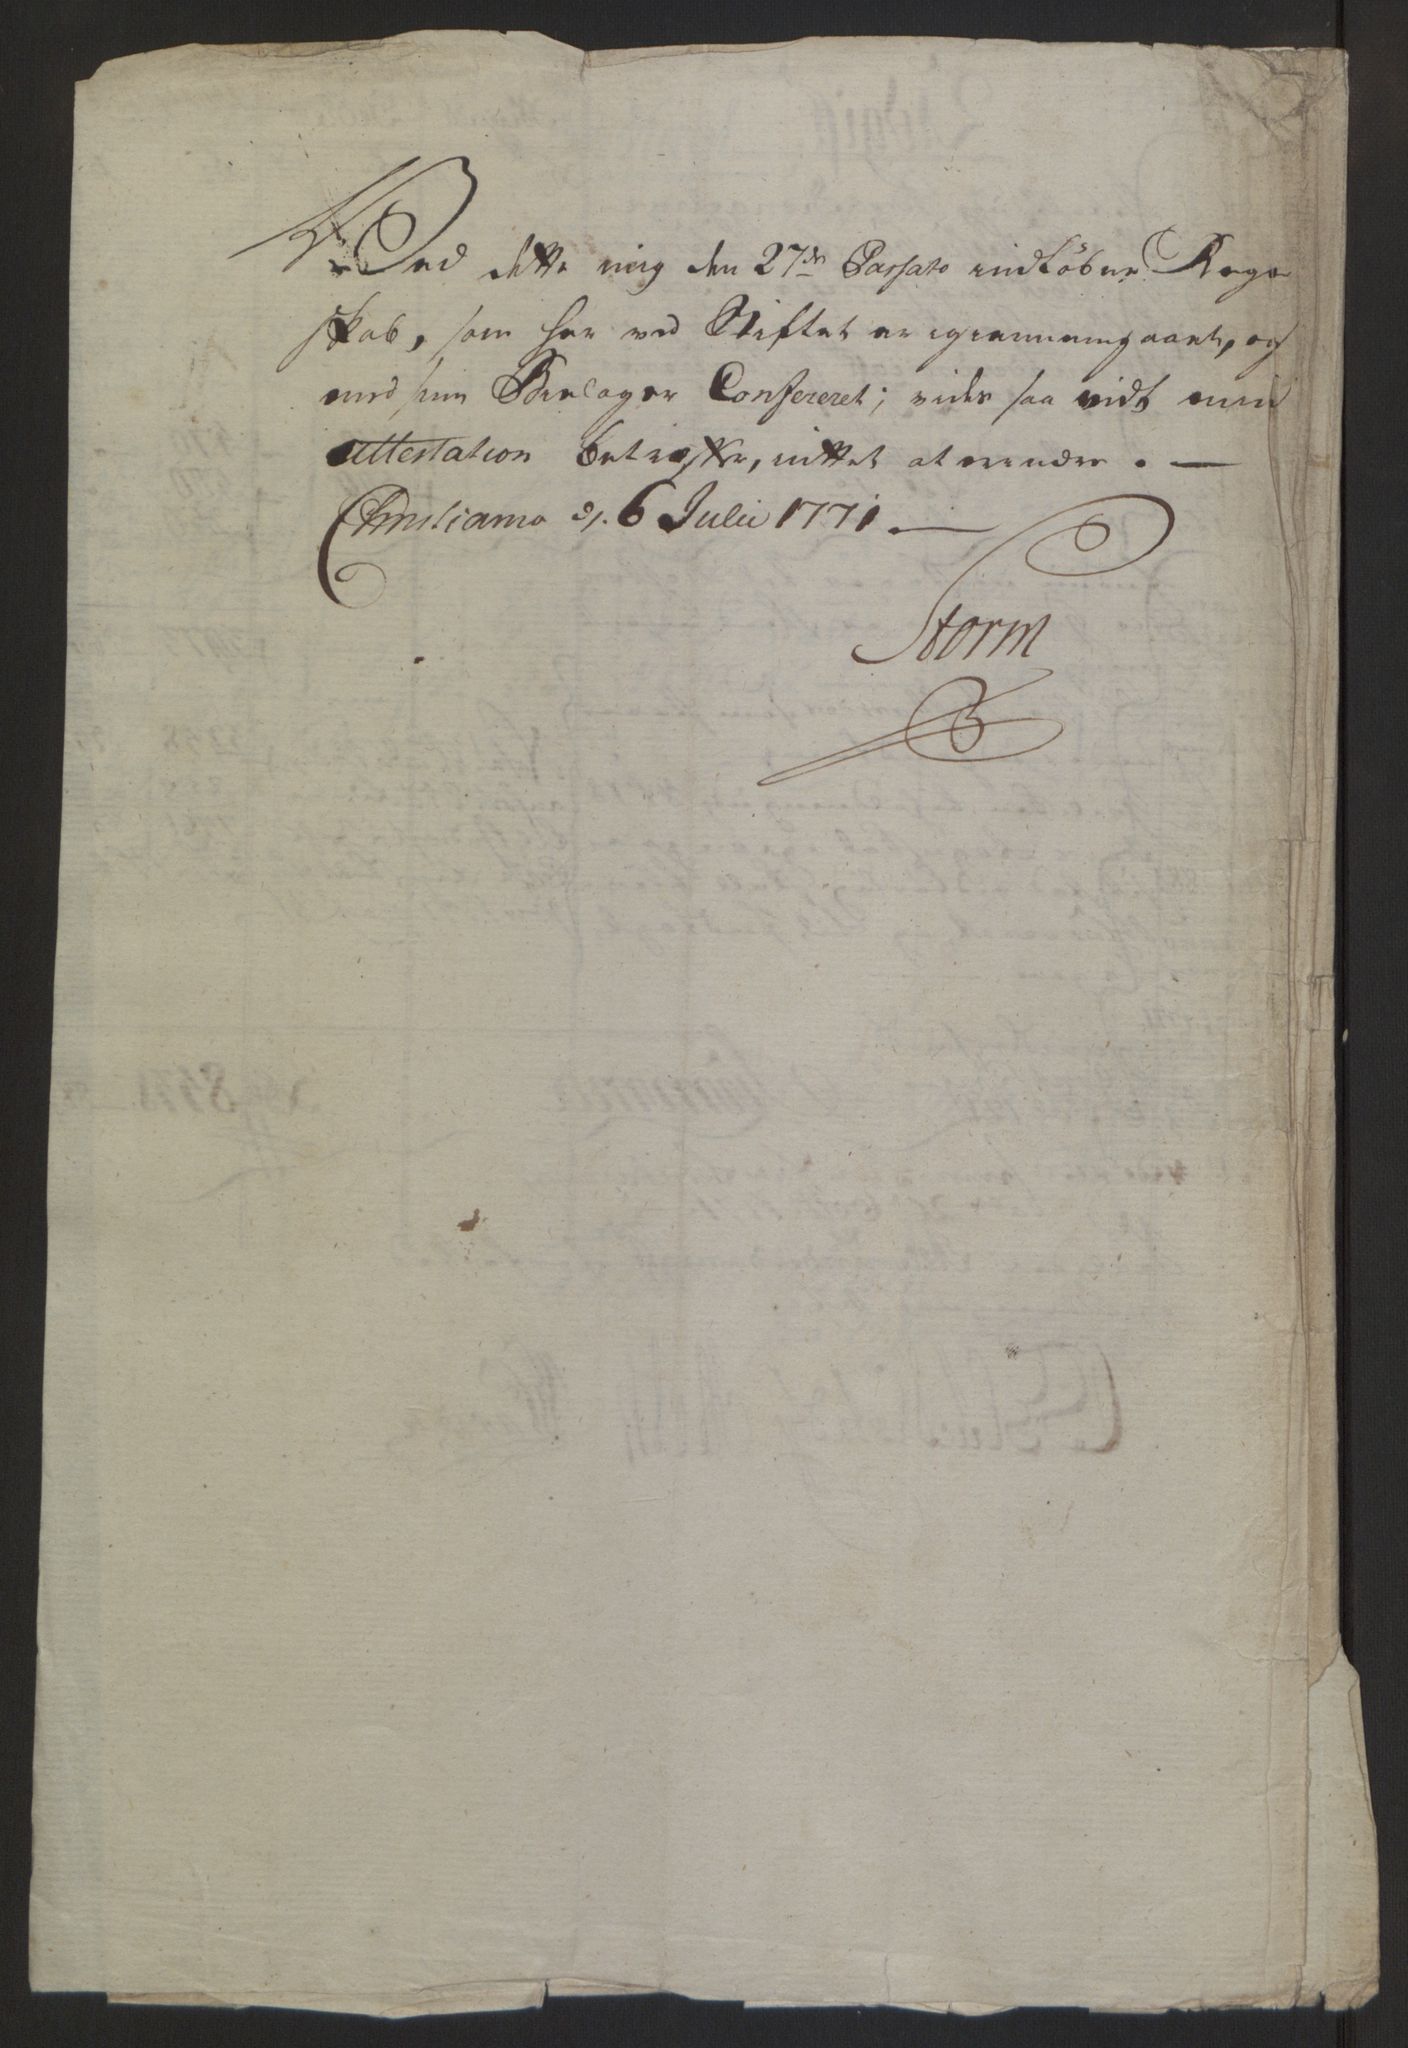 Ved dette mig den 27de Passato indløbne Regn-
skab, som her ved Stiftet er igiennemgaaet, og
med sine Bielager Confereret; vides saa vidt min
Attestation betreffer, intet at erindre. —
Christiania d. 6 Julii 1771. —
Storm